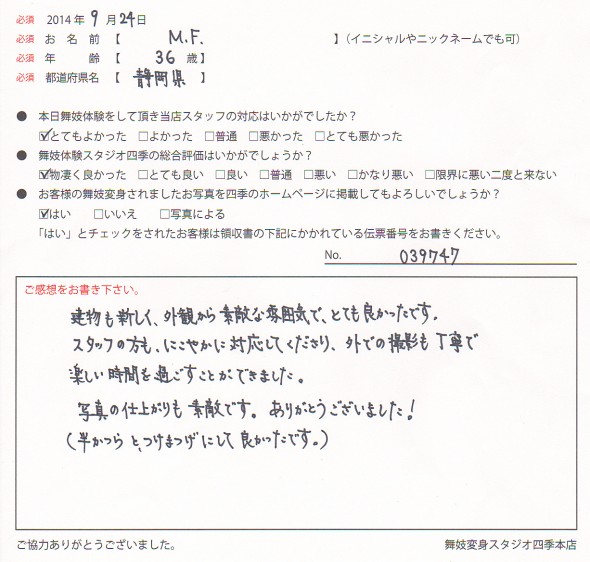 必須 2014年 9 月 24日
必須 お 名 前 【 M.F. 】(イニシャルやニックネームでも可)
必須 年 齢 【 36 歳】
必須 都道府県名 【 静岡県 】
● 本日舞妓体験をして頂き当店スタッフの対応はいかがでしたか?
☑とてもよかった □よかった □普通 □悪かった □とても悪かった
● 舞妓体験スタジオ四季の総合評価はいかがでしょうか?
☑物凄く良かった □とても良い □良い □普通 □悪い □かなり悪い □限界に悪い二度と来ない
● お客様の舞妓変身されましたお写真を四季のホームページに掲載してもよろしいでしょうか?
☑はい □いいえ □写真による
「はい」とチェックをされたお客様は領収書の下記にかかれている伝票番号をお書きください。
No. 039747
ご感想をお書き下さい。
建物も新しく、外観から素敵な雰囲気で、とても良かったです。
スタッフの方も、にこやかに対応してくださり、外での撮影も丁寧で
楽しい時間を過ごすことができました。
写真の仕上がりも素敵です。ありがとうございました!
(半かつらと、つけまつげにして良かったです。)
ご協力ありがとうございました。
舞妓変身スタジオ四季本店